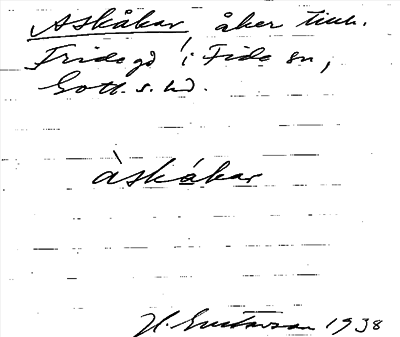 Askåkar åker tillh.
Fridegd i Fide sn,
Gotl. s. hd.
àskákar
H. Gustavson 1938